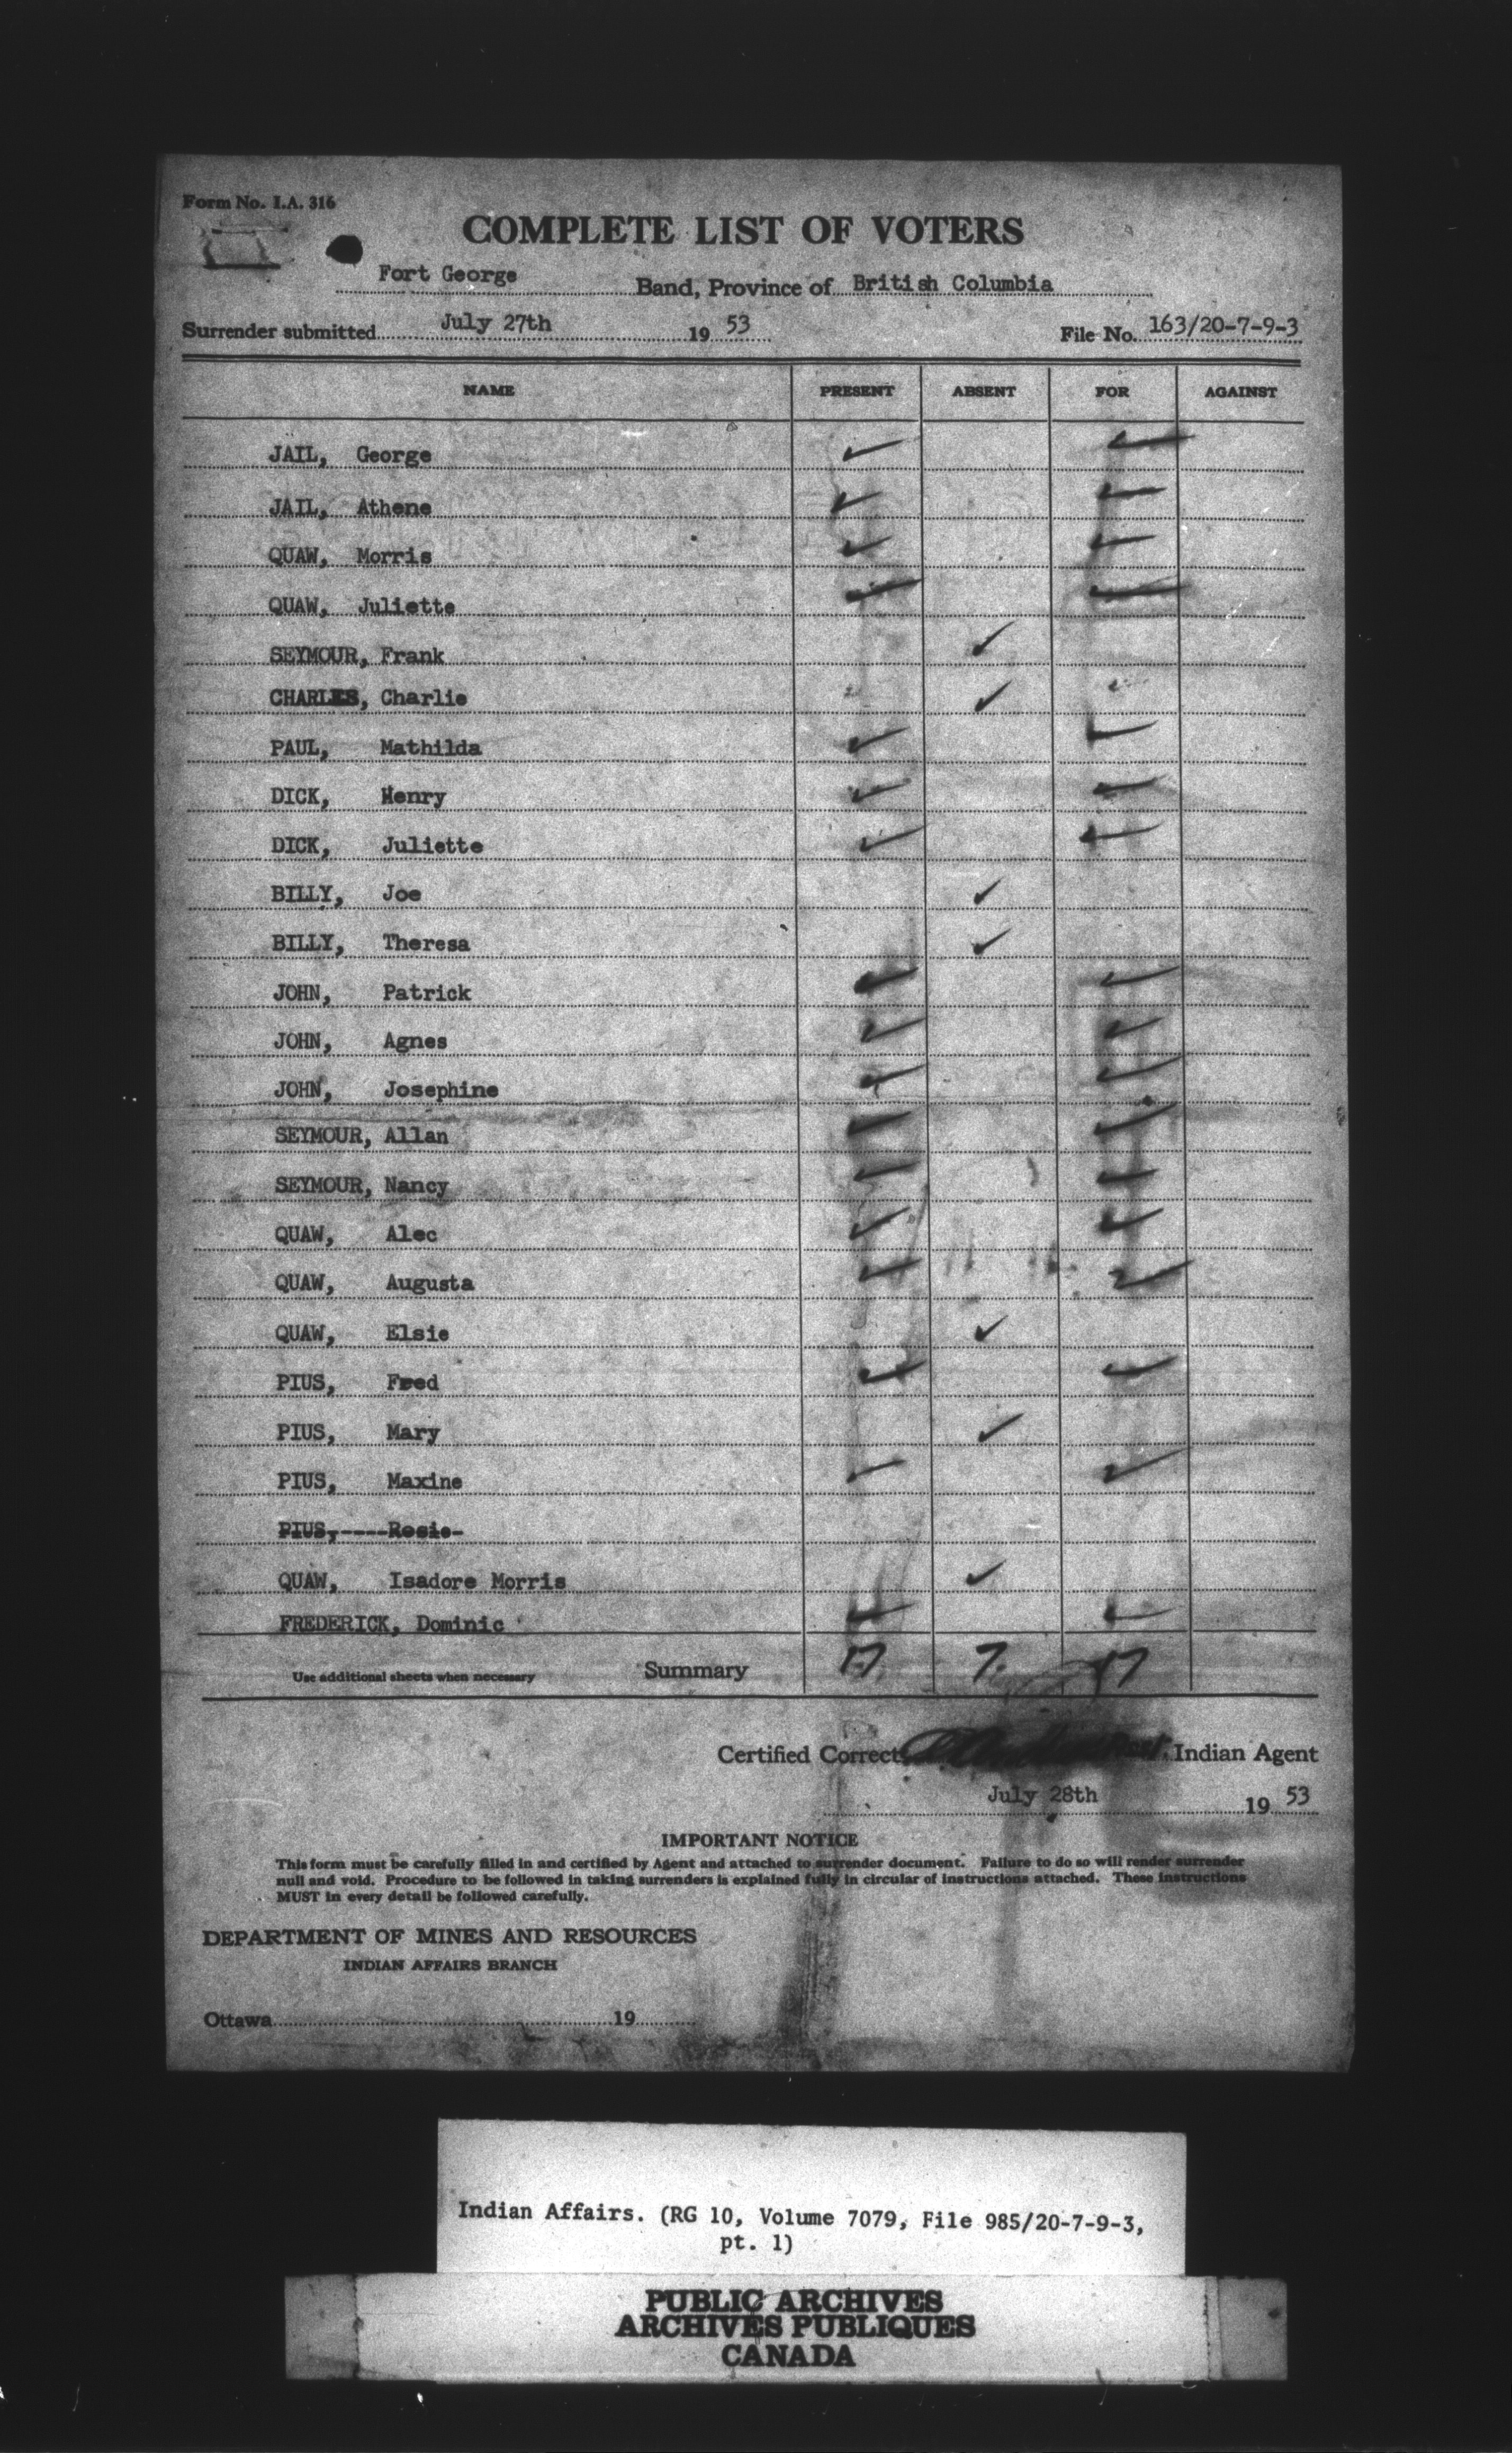 Form No. I.A. 316
COMPLETE LIST OF VOTERS
Fort George Band, Province of British Columbia
Surrender submitted July 27th 19 53 File No. 163/20-7-9-3
NAME PRESENT ABSENT FOR AGAINST
JAIL, George ✓ ✓
JAIL, Athene ✓ ✓
QUAW, Morris ✓ ✓
QUAW, Juliette ✓ ✓
SEYMOUR, Frank ✓
CHARLES, Charlie ✓
PAUL, Mathilda ✓ ✓
DICK, Henry ✓ ✓
DICK, Juliette ✓ ✓
BILLY, Joe ✓
BILLY, Theresa ✓
JOHN, Patrick ✓ ✓
JOHN, Agnes ✓ ✓
JOHN, Josephine ✓ ✓
SEYMOUR, Allan ✓ ✓
SEYMOUR, Nancy ✓ ✓
QUAW, Alec ✓ ✓
QUAW, Augusta ✓ ✓
QUAW, Elsie ✓
PIUS, Fred ✓ ✓
PIUS, Mary ✓
PIUS, Maxine ✓ ✓
PIUS, Rosie
QUAW, Isadore Morris ✓
FREDERICK, Dominic ✓ ✓
Use additional sheets when necessary Summary 17 7. 17
Certified Correct Indian Agent
July 28th 19 53
IMPORTANT NOTICE
This form must be carefully filled in and certified by Agent and attached to surrender document. Failure to do so will render surrender
null and void. Procedure to be followed in taking surrenders is explained fully in circular of instructions attached. These instructions
MUST in every detail be followed carefully.
DEPARTMENT OF MINES AND RESOURCES
INDIAN AFFAIRS BRANCH
Ottawa 19
Indian Affairs. (RG 10, Volume 7079, File 985/20-7-9-3,
pt. 1)
PUBLIC ARCHIVES
ARCHIVES PUBLIQUES
CANADA